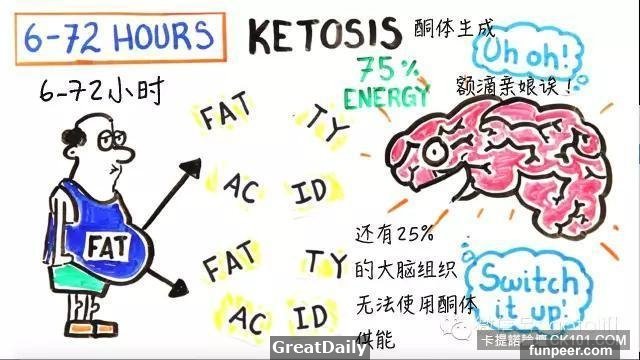 6-72 HOURS KETOSIS 酮体生成
Uh oh!
6-72小时
75% ENERGY
额滴亲娘诶!
FATTY
ACID
FAT
FATTY
ACID
还有25%
的大脑组织
无法使用酮体
供能
Switch it up!
GreatDaily
卡提諾論壇 CK101.COM
funpeer.com